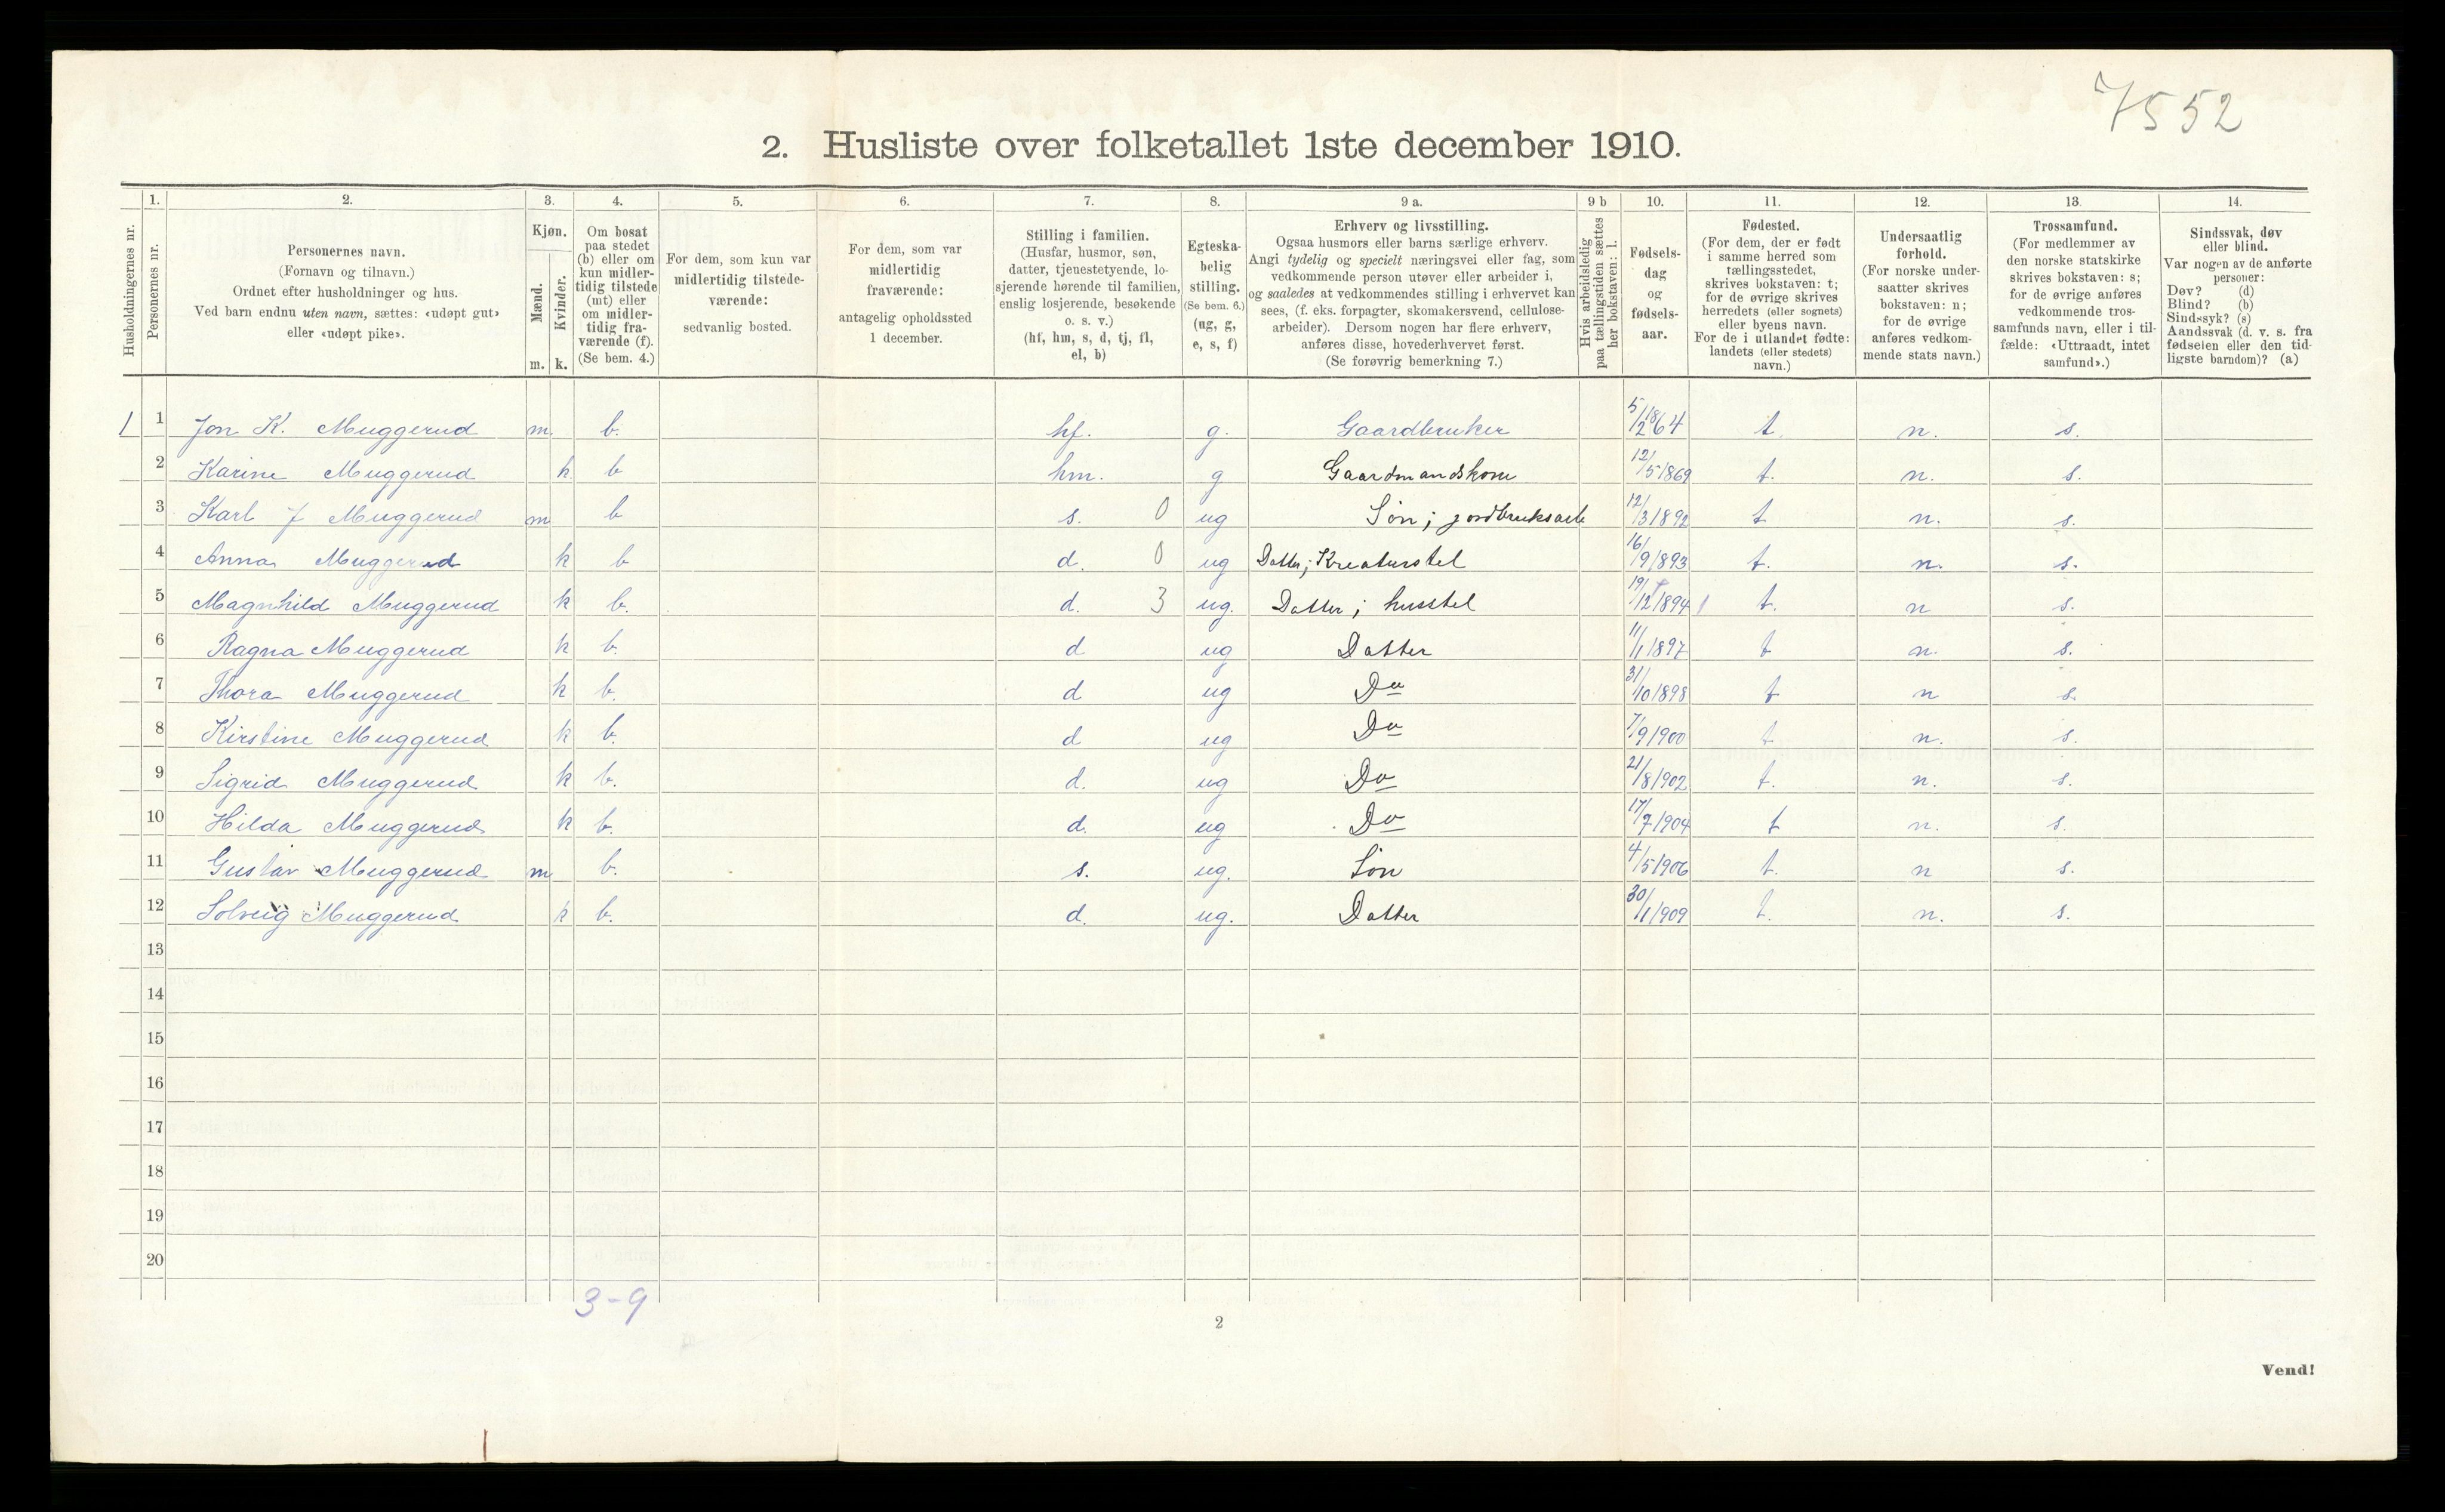 7552
2. Husliste over folketallet 1ste december 1910.
1. 2. 3. 4. 5. 6. 7. 8. 9 a. 9 b 10. 11. 12. 13. 14.
Husholdningernes nr.
Personernes nr.
Personernes navn.
(Fornavn og tilnavn.)
Ordnet efter husholdninger og hus.
Ved barn endnu uten navn, sættes: «udøpt gut»
eller «udøpt pike».
Kjøn.
Mænd.
Kvinder.
m. k.
Om bosat
paa stedet
(b) eller om
kun midler-
tidig tilstede
(mt) eller
om midler-
tidig fra-
værende (f).
(Se bem. 4.)
For dem, som kun var
midlertidig tilstede-
værende:
sedvanlig bosted.
For dem, som var
midlertidig
fraværende:
antagelig opholdssted
1 december.
Stilling i familien.
(Husfar, husmor, søn,
datter, tjenestetyende, lo-
sjerende hørende til familien,
enslig losjerende, besøkende
o. s. v.)
(hf, hm, s, d, tj, fl,
el, b)
Egteska-
belig
stilling.
(Se bem. 6.)
(ug, g,
e, s, f)
Erhverv og livsstilling.
Ogsaa husmors eller barns særlige erhverv.
Angi tydelig og specielt næringsvei eller fag, som
vedkommende person utøver eller arbeider i,
og saaledes at vedkommendes stilling i erhvervet kan
sees, (f. eks. forpagter, skomakersvend, cellulose-
arbeider). Dersom nogen har flere erhverv,
anføres disse, hovederhvervet først.
(Se forøvrig bemerkning 7.)
Hvis arbeidsledig
paa tællingstiden sættes
her bokstaven: l.
Fødsels-
dag
og
fødsels-
aar.
Fødested.
(For dem, der er født
i samme herred som
tællingsstedet,
skrives bokstaven: t;
for de øvrige skrives
herredets (eller sognets)
eller byens navn.
For de i utlandet fødte:
landets (eller stedets)
navn.)
Undersaatlig
forhold.
(For norske under-
saatter skrives
bokstaven: n;
for de øvrige
anføres vedkom-
mende stats navn.)
Trossamfund.
(For medlemmer av
den norske statskirke
skrives bokstaven: s;
for de øvrige anføres
vedkommende tros-
samfunds navn, eller i til-
fælde: «Uttraadt, intet
samfund».)
Sindssvak, døv
eller blind.
Var nogen av de anførte
personer:
Døv? (d)
Blind? (b)
Sindssyk? (s)
Aandssvak (d. v. s. fra
fødselen eller den tid-
ligste barndom)? (a)
1 1 Jon K. Muggerud m. b. hf. g. Gaardbruker 5/2 1864 t. n. s.
2 Karine Muggerud k b hm. g Gaardmandskone 12/5 1869 t. n. s.
3 Karl J Muggerud m b s. 0 ug Søn; jordbruksarb 12/3 1892 t n. s.
4 Anna Muggerud k b d. 0 ug Datter; Kreaturstel 16/9 1893 t. n. s.
5 Magnhild Muggerud k b. d. 3 ug. Datter; husstel 19/12 1894 t. n s.
6 Ragna Muggerud k b. d ug Datter 11/1 1897 t n. s.
7 Thora Muggerud k b. d ug Do 31/10 1898 t n s.
8 Kirstine Muggerud k b. d ug Do 7/9 1900 t n. s.
9 Sigrid Muggerud k b. d. ug Do 21/8 1902 t. n. s.
10 Hilda Muggerud k b. d. ug Do 17/7 1904 t n. s.
11 Gustav Muggerud m b. s. ug. Søn 4/5 1906 t. n s.
12 Solveig Muggerud k b. d. ug. Datter 30/1 1909 t. n. s.
13
14
15
16
17
18
19
20
3-9
2
Vend!